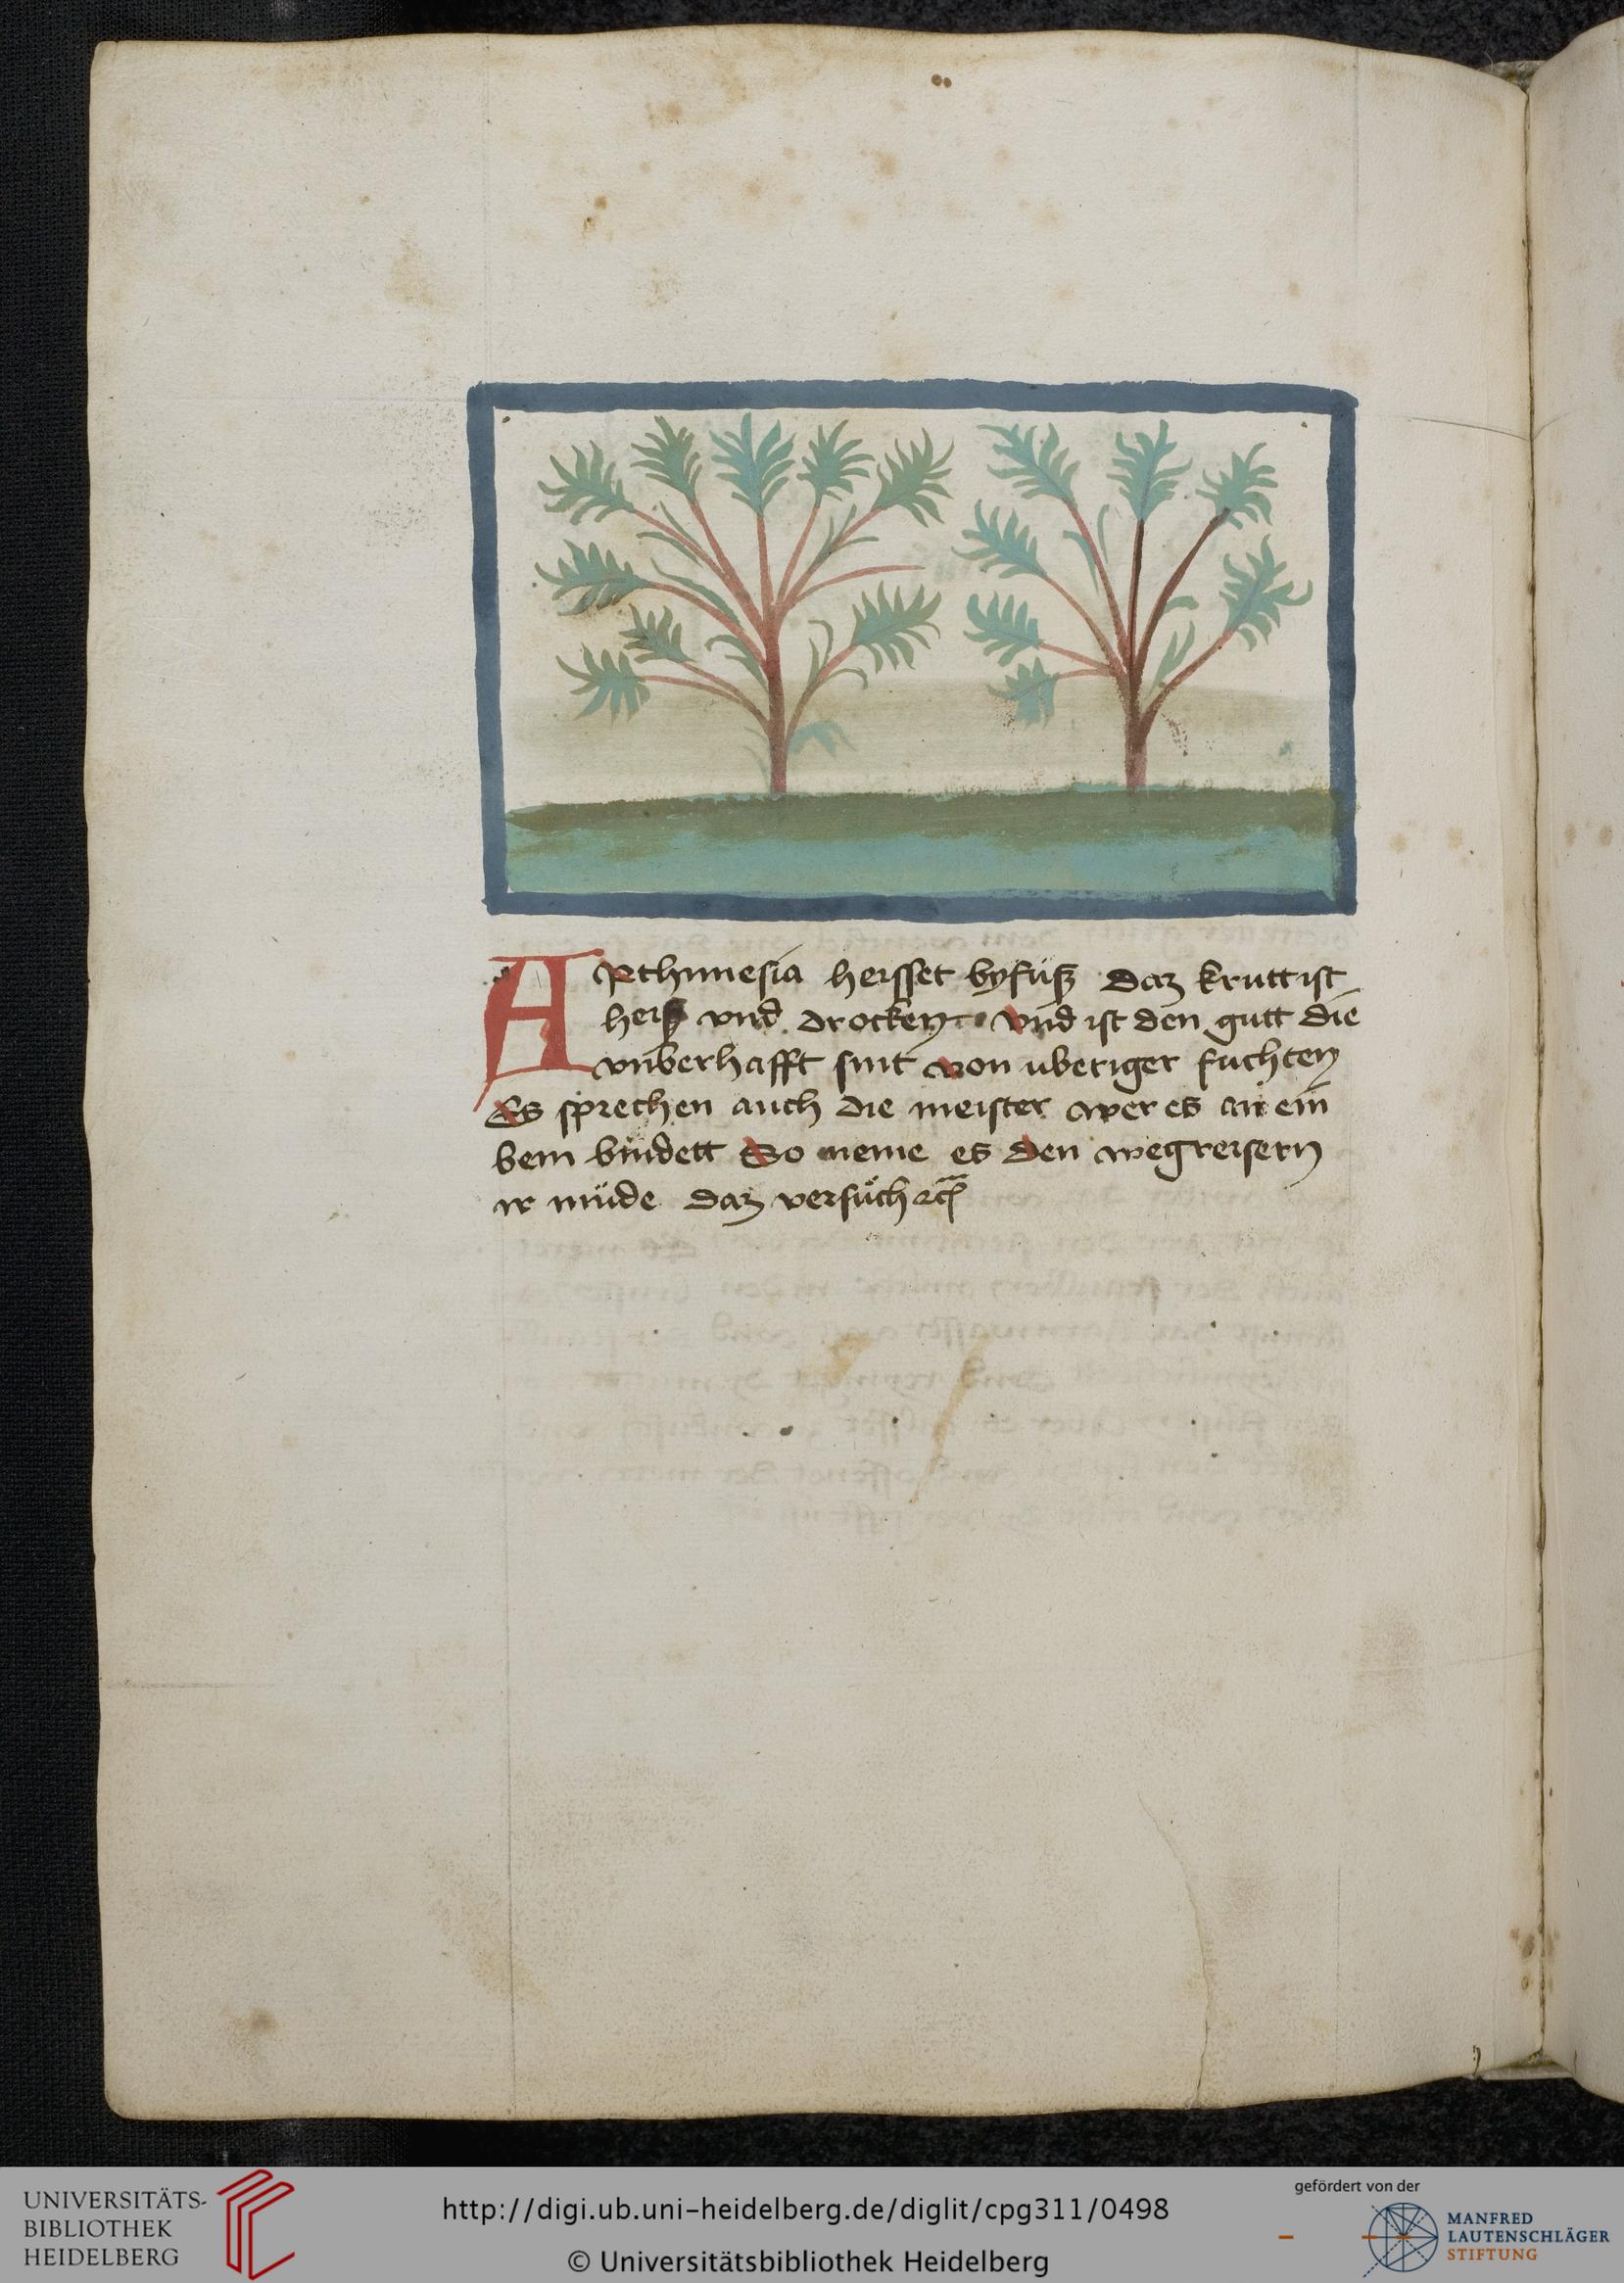 ARthimesia heisset byfuͦsz daz krutt ist
heisz vnd drocken vnd ist den gutt die
vnberhafft sint von uberiger fuchten
Es sprechen auch die meister wer es an ein
bein bindett So neme es den wegreisern
ir müde daz versuͦch
UNIVERSITÄTS-
BIBLIOTHEK
HEIDELBERG
http://digi.ub.uni-heidelberg.de/diglit/cpg311/0498
© Universitätsbibliothek Heidelberg
gefördert von der
MANFRED
LAUTENSCHLÄGER
STIFTUNG